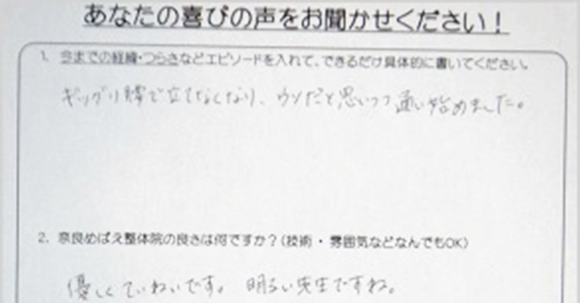 あなたの喜びの声をお聞かせください！
1. 今までの経緯・つらさなどエピソードを入れて、できるだけ具体的に書いてください。
ギックリ腰で立てなくなり、ウソだと思いつつ通い始めました。
2. 奈良めばえ整体院の良さは何ですか？(技術・雰囲気などなんでもOK)
優しくていねいです。明るい先生ですね。